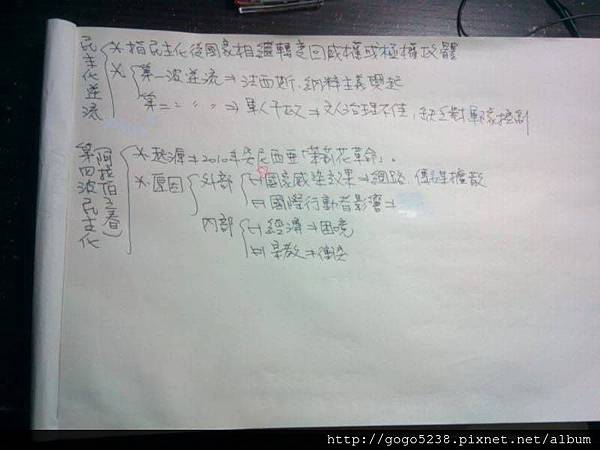 民主化逆流
※ 指民主化後國家相繼轉変回威權或極權政體
※ 第一波逆流⇒法西斯、納粹主義興起
第二〃 〃 〃 ⇒ 軍人干政⇒文人治理不佳，缺乏對軍隊控制
第四波民主化
(阿拉伯之春)
※ 起源⇒2010年突尼西亞「茉莉花革命」。
※ 原因
外部
(一)國家感染效果⇒網路、傳媒擴散
(二)國際行動者影響⇒
內部
(一)經濟⇒困境
(二)宗教⇒傳染
http://gogo5238.pixnet.net/album